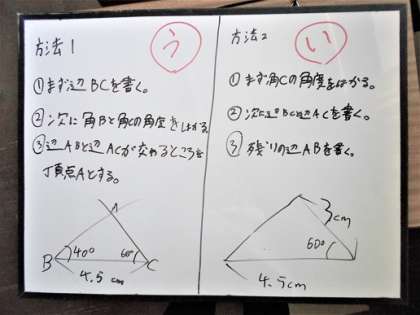 方法1
う
①まず辺BCを書く。
②次に角Bと角Cの角度をはかる
③辺ABと辺ACが交わるところを
頂点Aとする。
A
B
40°
60°
C
4.5cm
方法2
い
①まず角Cの角度をはかる。
②次に辺BCと辺ACを書く。
③残りの辺ABを書く。
3cm
60°
4.5cm